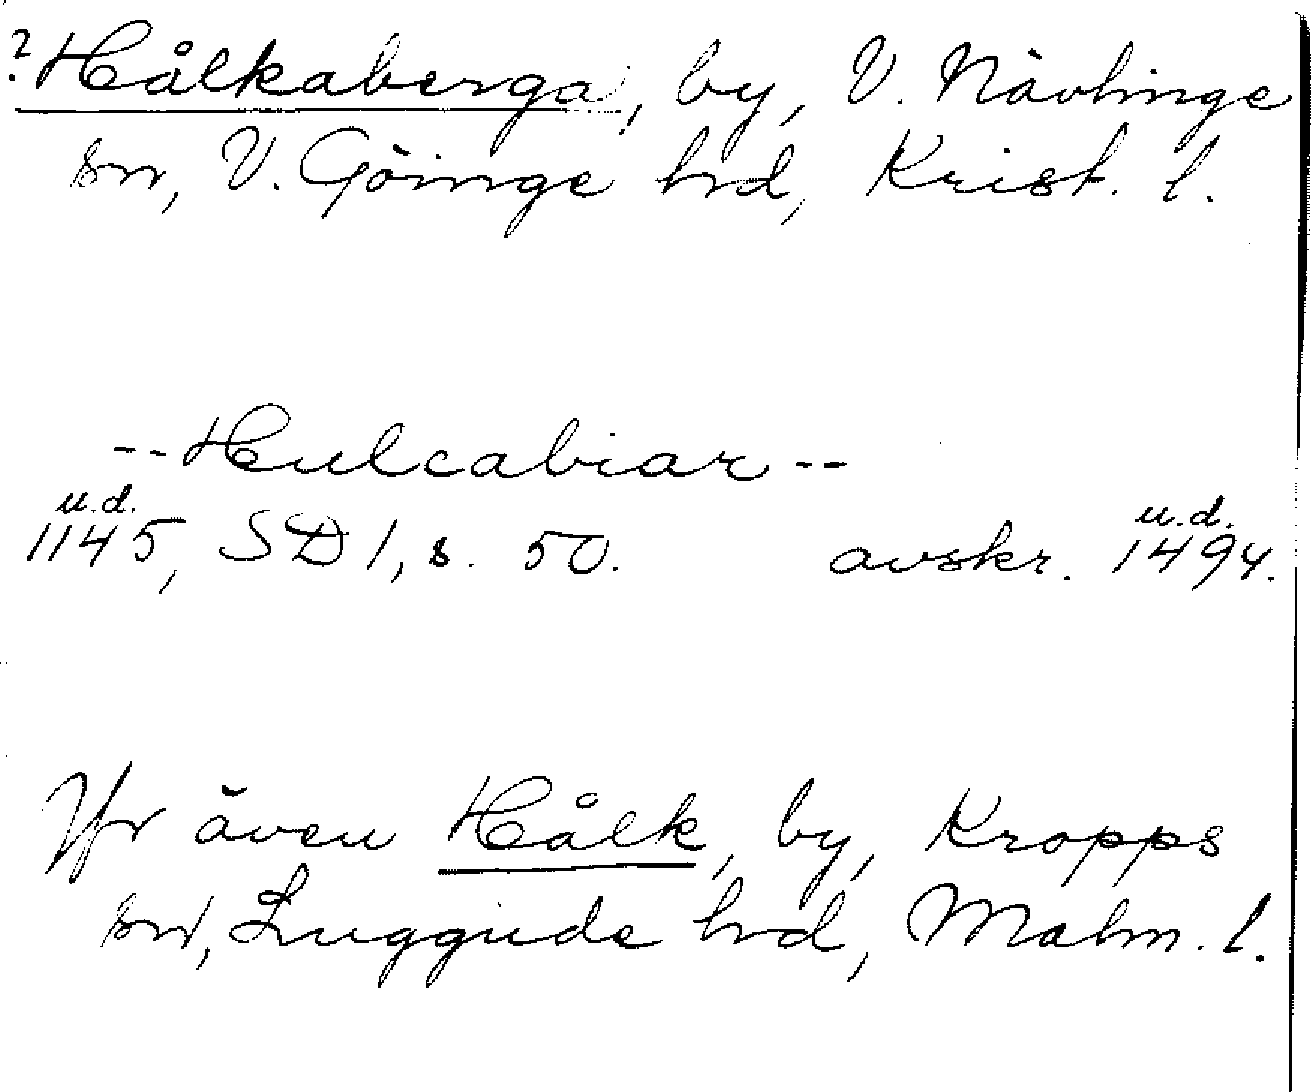 ? Hålkaberga, by, V. Nävlinge
sn, V. Göinge hd, Krist. l.
-- Hulcabiar --
u.d. u.d.
1145, SD 1, s. 50. avskr. 1494.
Jfr även Hålk, by, Kropps
sn, Luggude hd, Malm. l.